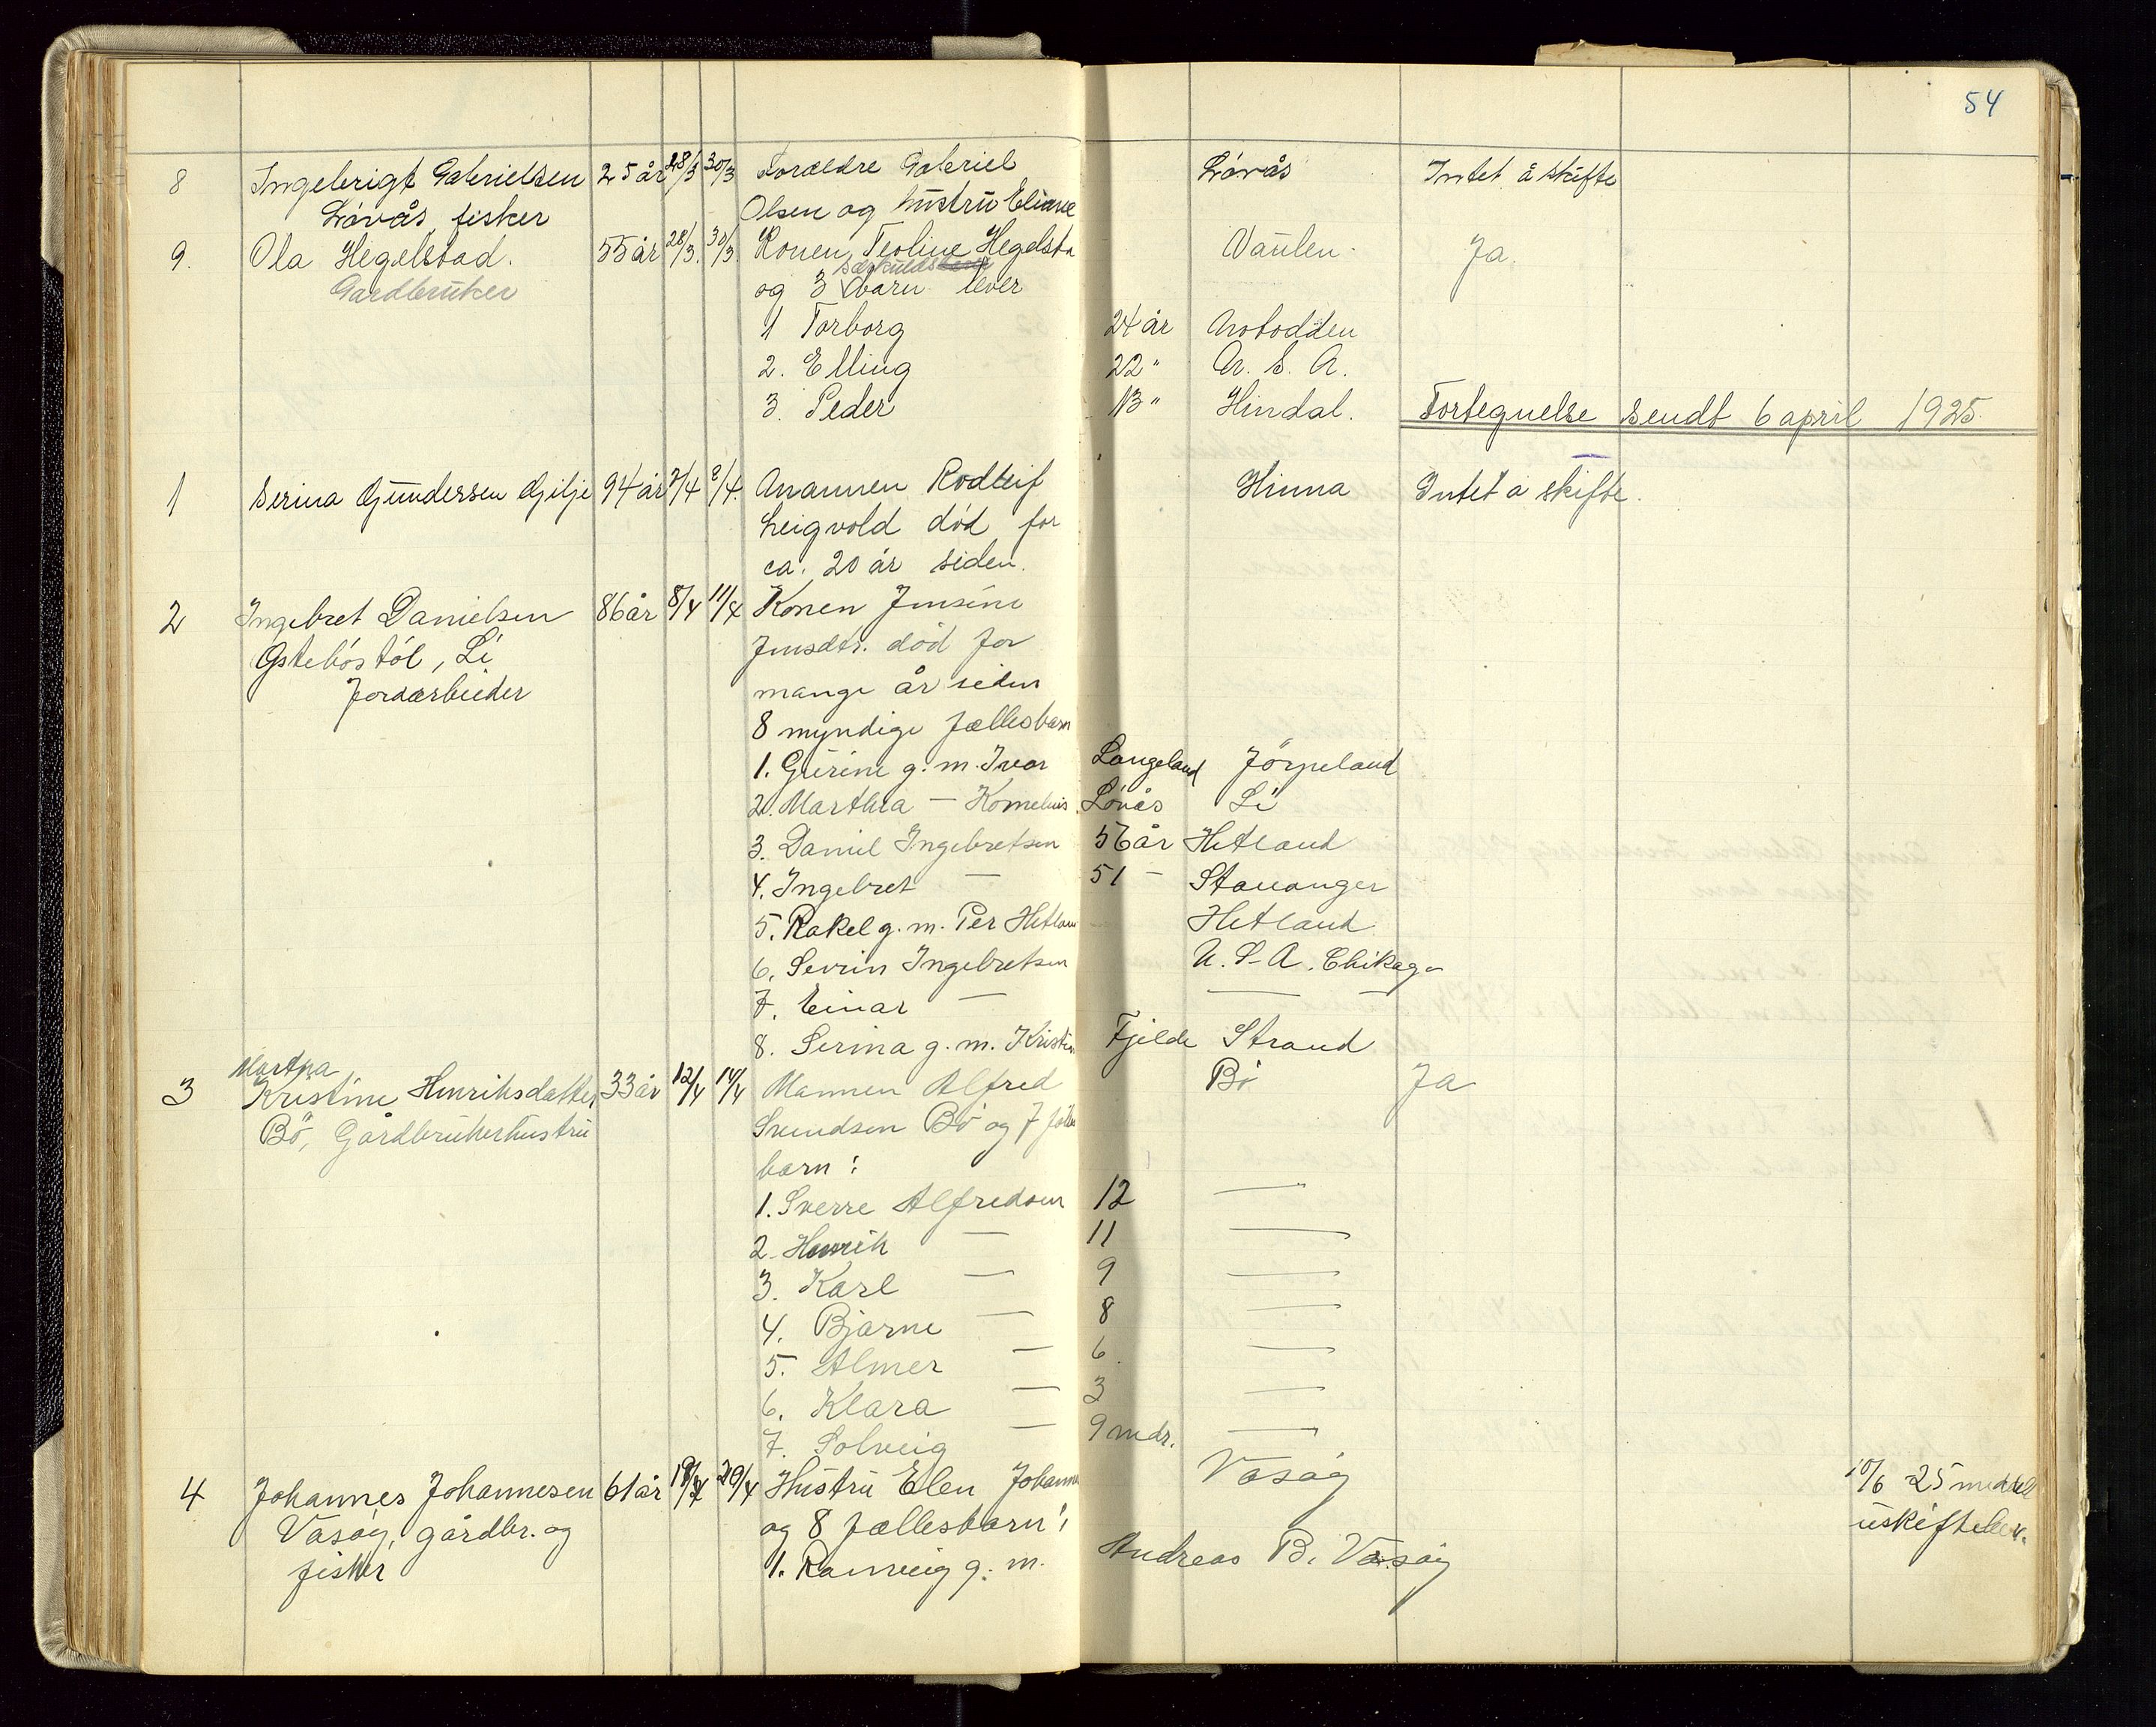 54
8 Ingebrigt Gabrielsen 25 år 28/3 30/3 Foreldre Gabriel Lövås Intet å skifte
Lövås, fisker Olsen og hustru Eliane
9. Ola Hegelstad. 55 år 28/3. 30/3. Konen, Teoline Hegelsta Vaulen. Ja.
særkulds
Gardbruker og 3 barn lever
1 Torborg 24 år Notodden
2. Elling 22 " U. S. A.
3. Peder 13 " Hindal. Fortegnelse sendt 6 april 1925.
1 Serina Gundersen Gilje 94 år 7/4 9/4. Mannen Rodleif Hinna Intet å skifte.
Leigvold död for
ca. 20 år siden.
2 Ingebret Danielsen 86 år 8/4 11/4 Konen Jensine
Østebøstöl, Li Jensdtr. död for
Jordarbeider mange år siden
8 myndige fællesbarn
1. Gurine g. m. Ivar Langeland Jörpeland
2. Martha — Kornelius Lövås Li
3. Daniel Ingebretsen 56 år Hetland
4. Ingebret — 51 — Stavanger
5. Rakel g. m. Per Hetlan Hetland
6. Sevrin Ingebretsen U. S. A. Chikago
7. Einar — — —
8. Serina g. m. Kristen Fjelde Strand
Martha
3 Kristine Henriksdatter 33 år 12/4 14/4 Mannen Alfred Bö Ja
Bö, Gårdbrukerhustru Svendsen Bö og 7
barn :
1. Sverre Alfredsen 12 —
2. Henrik — 11 —
3. Karl — 9 —
4. Bjarne — 8 —
5. Almer — 6. —
6. Klara — 3 —
7. Solveig — 9 mdr. —
4 Johannes Johannesen 61 år 19/4 20/4 Hustru Elen Johanne Våsöy 10/6 25 meddelt
Våsöy, gårdbr. og og 8 fællesbarn: uskiftebev.
fisker 1. Ranveig g. m. Andreas B. Våsöy